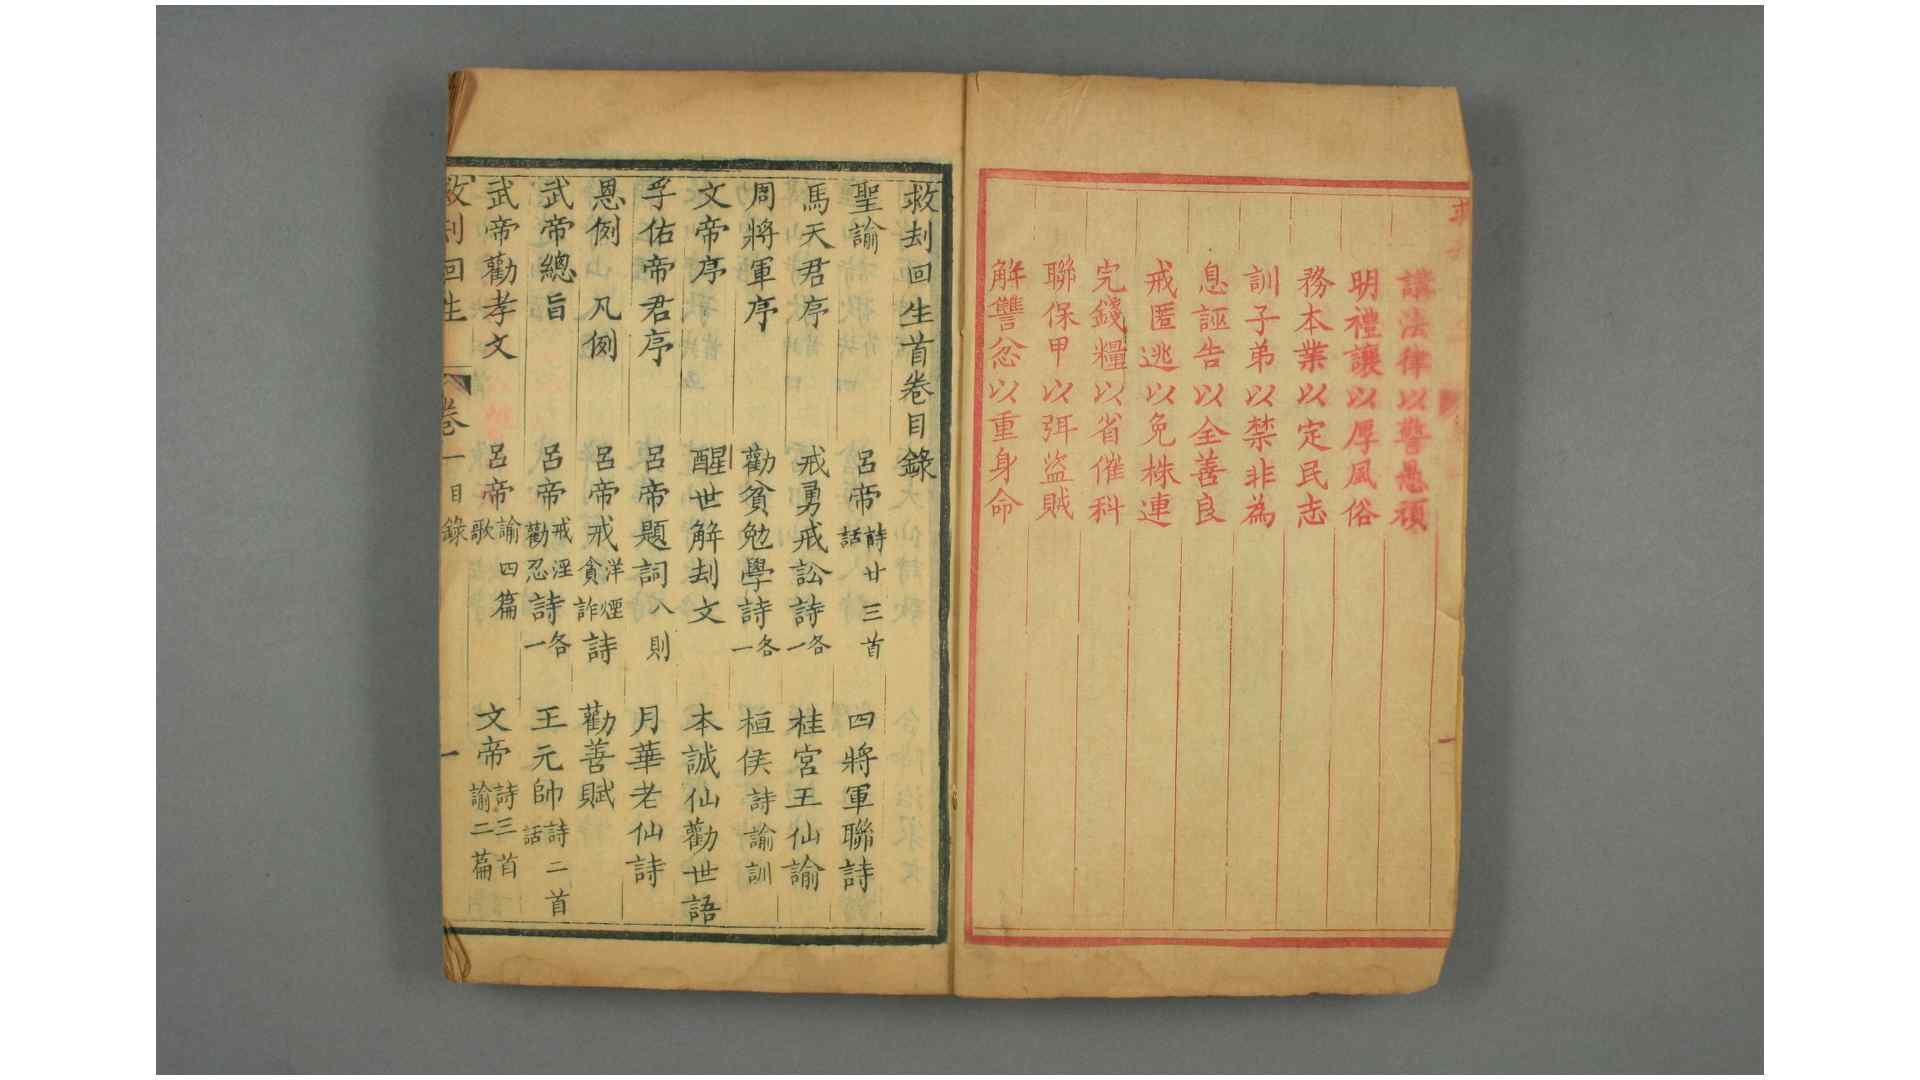 講法律以警愚頑
明禮讓以厚風俗
務本業以定民志
訓子弟以禁非為
息誣告以全善良
戒匿逃以免株連
完錢糧以省催科
聯保甲以弭盜賊
解讐忿以重身命
救刦回生首卷目錄
聖諭 呂帝詩話廿三首 四將軍聯詩
馬天君序 戒勇戒訟詩各一 桂宮王仙諭
周將軍序 勸貧勉學詩各一 桓侯詩諭訓
文帝序 醒世解刦文 本誠仙勸世語
孚佑帝君序 呂帝題詞八則 月華老仙詩
恩例 凡例 呂帝戒洋煙貪詐詩 勸善賦
武帝總旨 呂帝戒淫勸忍詩各一 王元帥詩話二首
武帝勸孝文 呂帝諭歌四篇 文帝詩三首諭二篇
救刦回生 卷一目錄 一